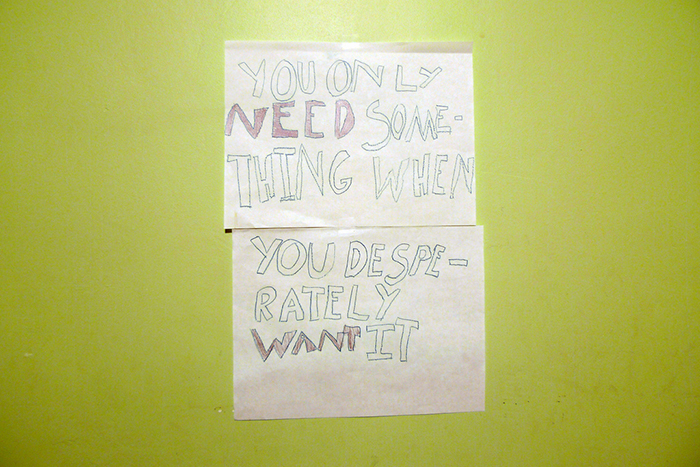 YOU ONLY
NEED SOME-
THING WHEN
YOU DESPE-
RATELY
WANT IT